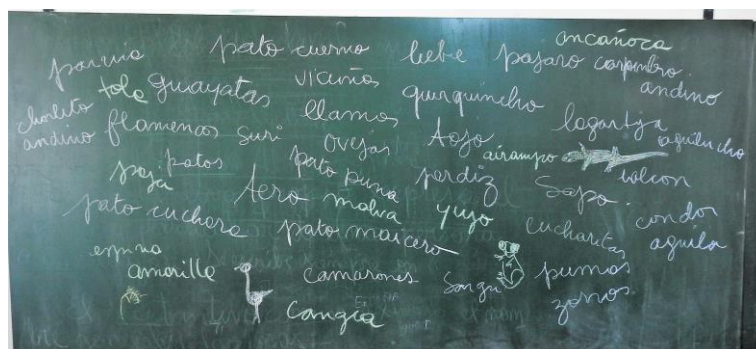 ancañoca
parina pato cuervo liebe pajaro carpintro andino
tola guayatas vicuñas quirquincho
chorlito andino flamencos suri llamas ovejas Tojo lagartija aguilucho
paja patos pato puna perdiz airampo Sapo
pato cuchara Tero malva yuyo condor
pato maicero cucharitas aguila
espina amarilla camarones pumas
cangia zorros